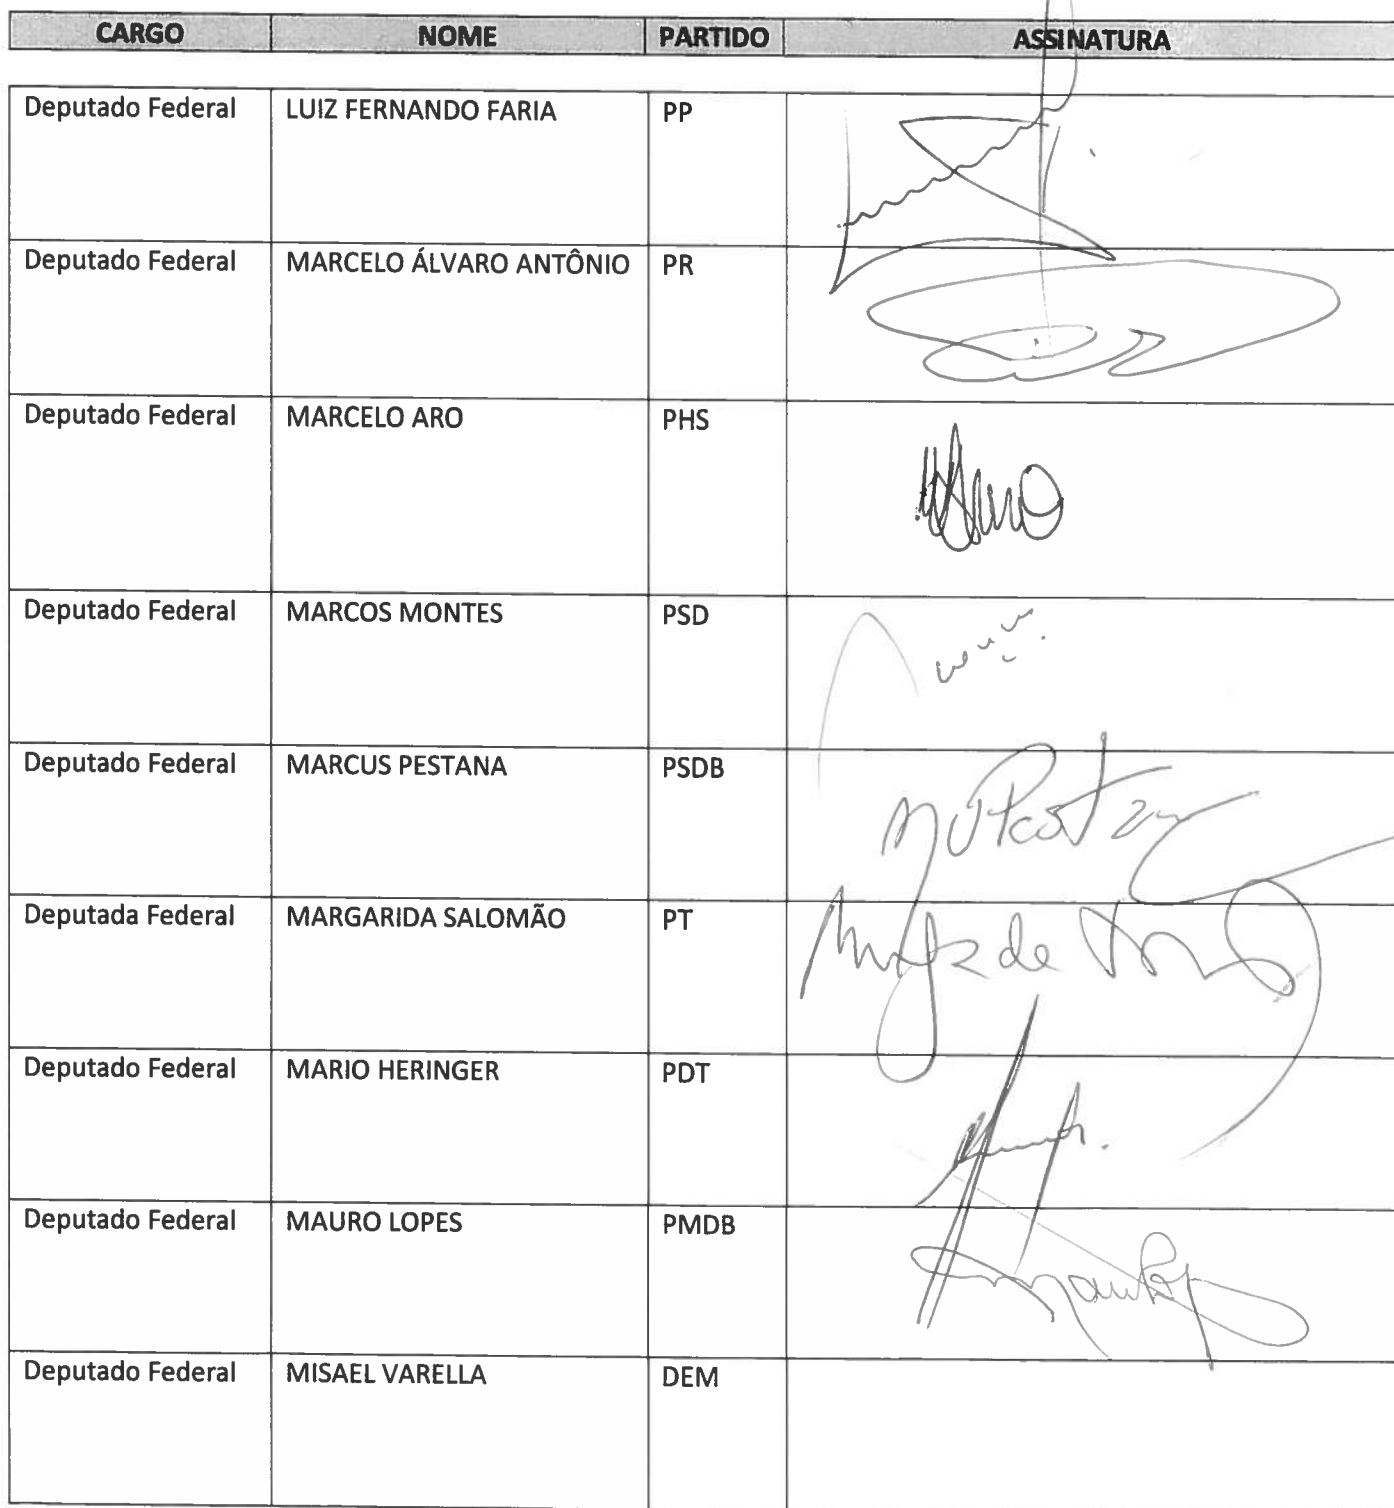 CARGO NOME PARTIDO ASSINATURA
Deputado Federal LUIZ FERNANDO FARIA PP
Deputado Federal MARCELO ÁLVARO ANTÔNIO PR
Deputado Federal MARCELO ARO PHS
Deputado Federal MARCOS MONTES PSD
Deputado Federal MARCUS PESTANA PSDB
Deputada Federal MARGARIDA SALOMÃO PT
Deputado Federal MARIO HERINGER PDT
Deputado Federal MAURO LOPES PMDB
Deputado Federal MISAEL VARELLA DEM